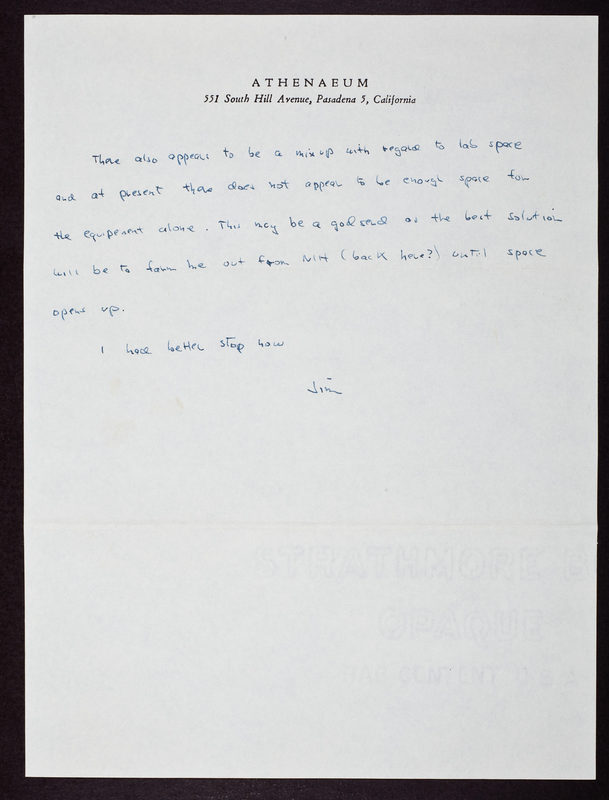 ATHENAEUM
551 South Hill Avenue, Pasadena 5, California
There also appears to be a mixup with regard to lab space
and at present there does not appear to be enough space for
the equipment alone. This may be a godsend as the best solution
will be to farm me out from NIH (back here?) until space
opens up.
I had better stop now
Jim
STRATHMORE B
OPAQUE
RAG CONTENT U S A